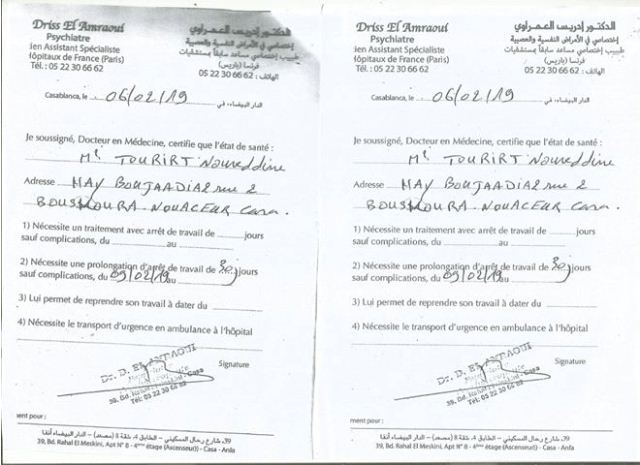 Driss El Amraoui
الدكتور إدريس العمراوي
Psychiatre
إختصاصي في الأمراض النفسية والعصبية
ien Assistant Spécialiste
طبيب إختصاصي مساعد سابقا بمستشفيات
Hôpitaux de France (Paris)
فرنسا (باريس)
Tél. : 05 22 30 66 62
الهاتف : 05 22 30 66 62
Casablanca, le 06/02/19 الدار البيضاء، في
Je soussigné, Docteur en Médecine, certifie que l'état de santé :
Mr TOURIRT Noureddine
Adresse HAY BOUJAADIA2 rue 2
BOUSKOURA NOUACEUR Casa.
1) Nécessite un traitement avec arrêt de travail de jours
sauf complications, du au
2) Nécessite une prolongation d'arrêt de travail de jours
sauf complications, du 09/02/19
3) Lui permet de reprendre son travail à dater du
4) Nécessite le transport d'urgence en ambulance à l'hôpital
Signature
Dr. D. EL AMRAOUI
39, Bd. Casa
Tél: 05 22 30 66 62
ment pour :
39، شارع رحال المسكيني - الطابق 4، شقة 8 (مصعد) - الدار البيضاء أنفا
39, Bd. Rahal El Meskini, Apt N° 8 - 4ème étage (Ascenseur) - Casa - Anfa
Driss El Amraoui
الدكتور إدريس العمراوي
Psychiatre
إختصاصي في الأمراض النفسية والعصبية
ien Assistant Spécialiste
طبيب إختصاصي مساعد سابقا بمستشفيات
Hôpitaux de France (Paris)
فرنسا (باريس)
Tél. : 05 22 30 66 62
الهاتف : 05 22 30 66 62
Casablanca, le 06/02/19 الدار البيضاء، في
Je soussigné, Docteur en Médecine, certifie que l'état de santé :
Mr TOURIRT Noureddine
Adresse HAY BOUJAADIA2 rue 2
BOUSKOURA NOUACEUR Casa.
1) Nécessite un traitement avec arrêt de travail de jours
sauf complications, du au
2) Nécessite une prolongation d'arrêt de travail de jours
sauf complications, du 09/02/19
3) Lui permet de reprendre son travail à dater du
4) Nécessite le transport d'urgence en ambulance à l'hôpital
Signature
Dr. D. EL AMRAOUI
39, Bd. Casa
Tél: 05 22 30 66 62
ment pour :
39، شارع رحال المسكيني - الطابق 4، شقة 8 (مصعد) - الدار البيضاء أنفا
39, Bd. Rahal El Meskini, Apt N° 8 - 4ème étage (Ascenseur) - Casa - Anfa